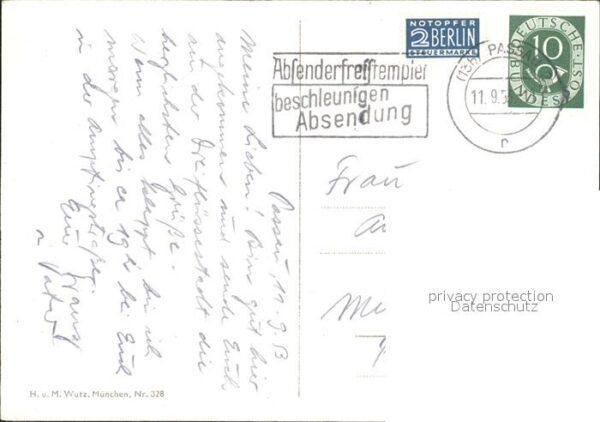 Passau, 11. 9. 53
Meine Lieben! Bin gut hier
angekommen und sende Euch
aus der Dreiflüssestadt die
herzlichsten Grüße.
Wenn alles klappt bin ich
morgen bis ca 19 h bei Euch
in der
Euer
u. Vater
NOTOPFER
2 BERLIN
STEUERMARKE
DEUTSCHE BUNDESPOST
10
Absenderfreistempler
beschleunigen
Absendung
(13b) PASSAU
11.9.5
r
Frau
privacy protection
Datenschutz
H. u. M. Wutz, München, Nr. 328